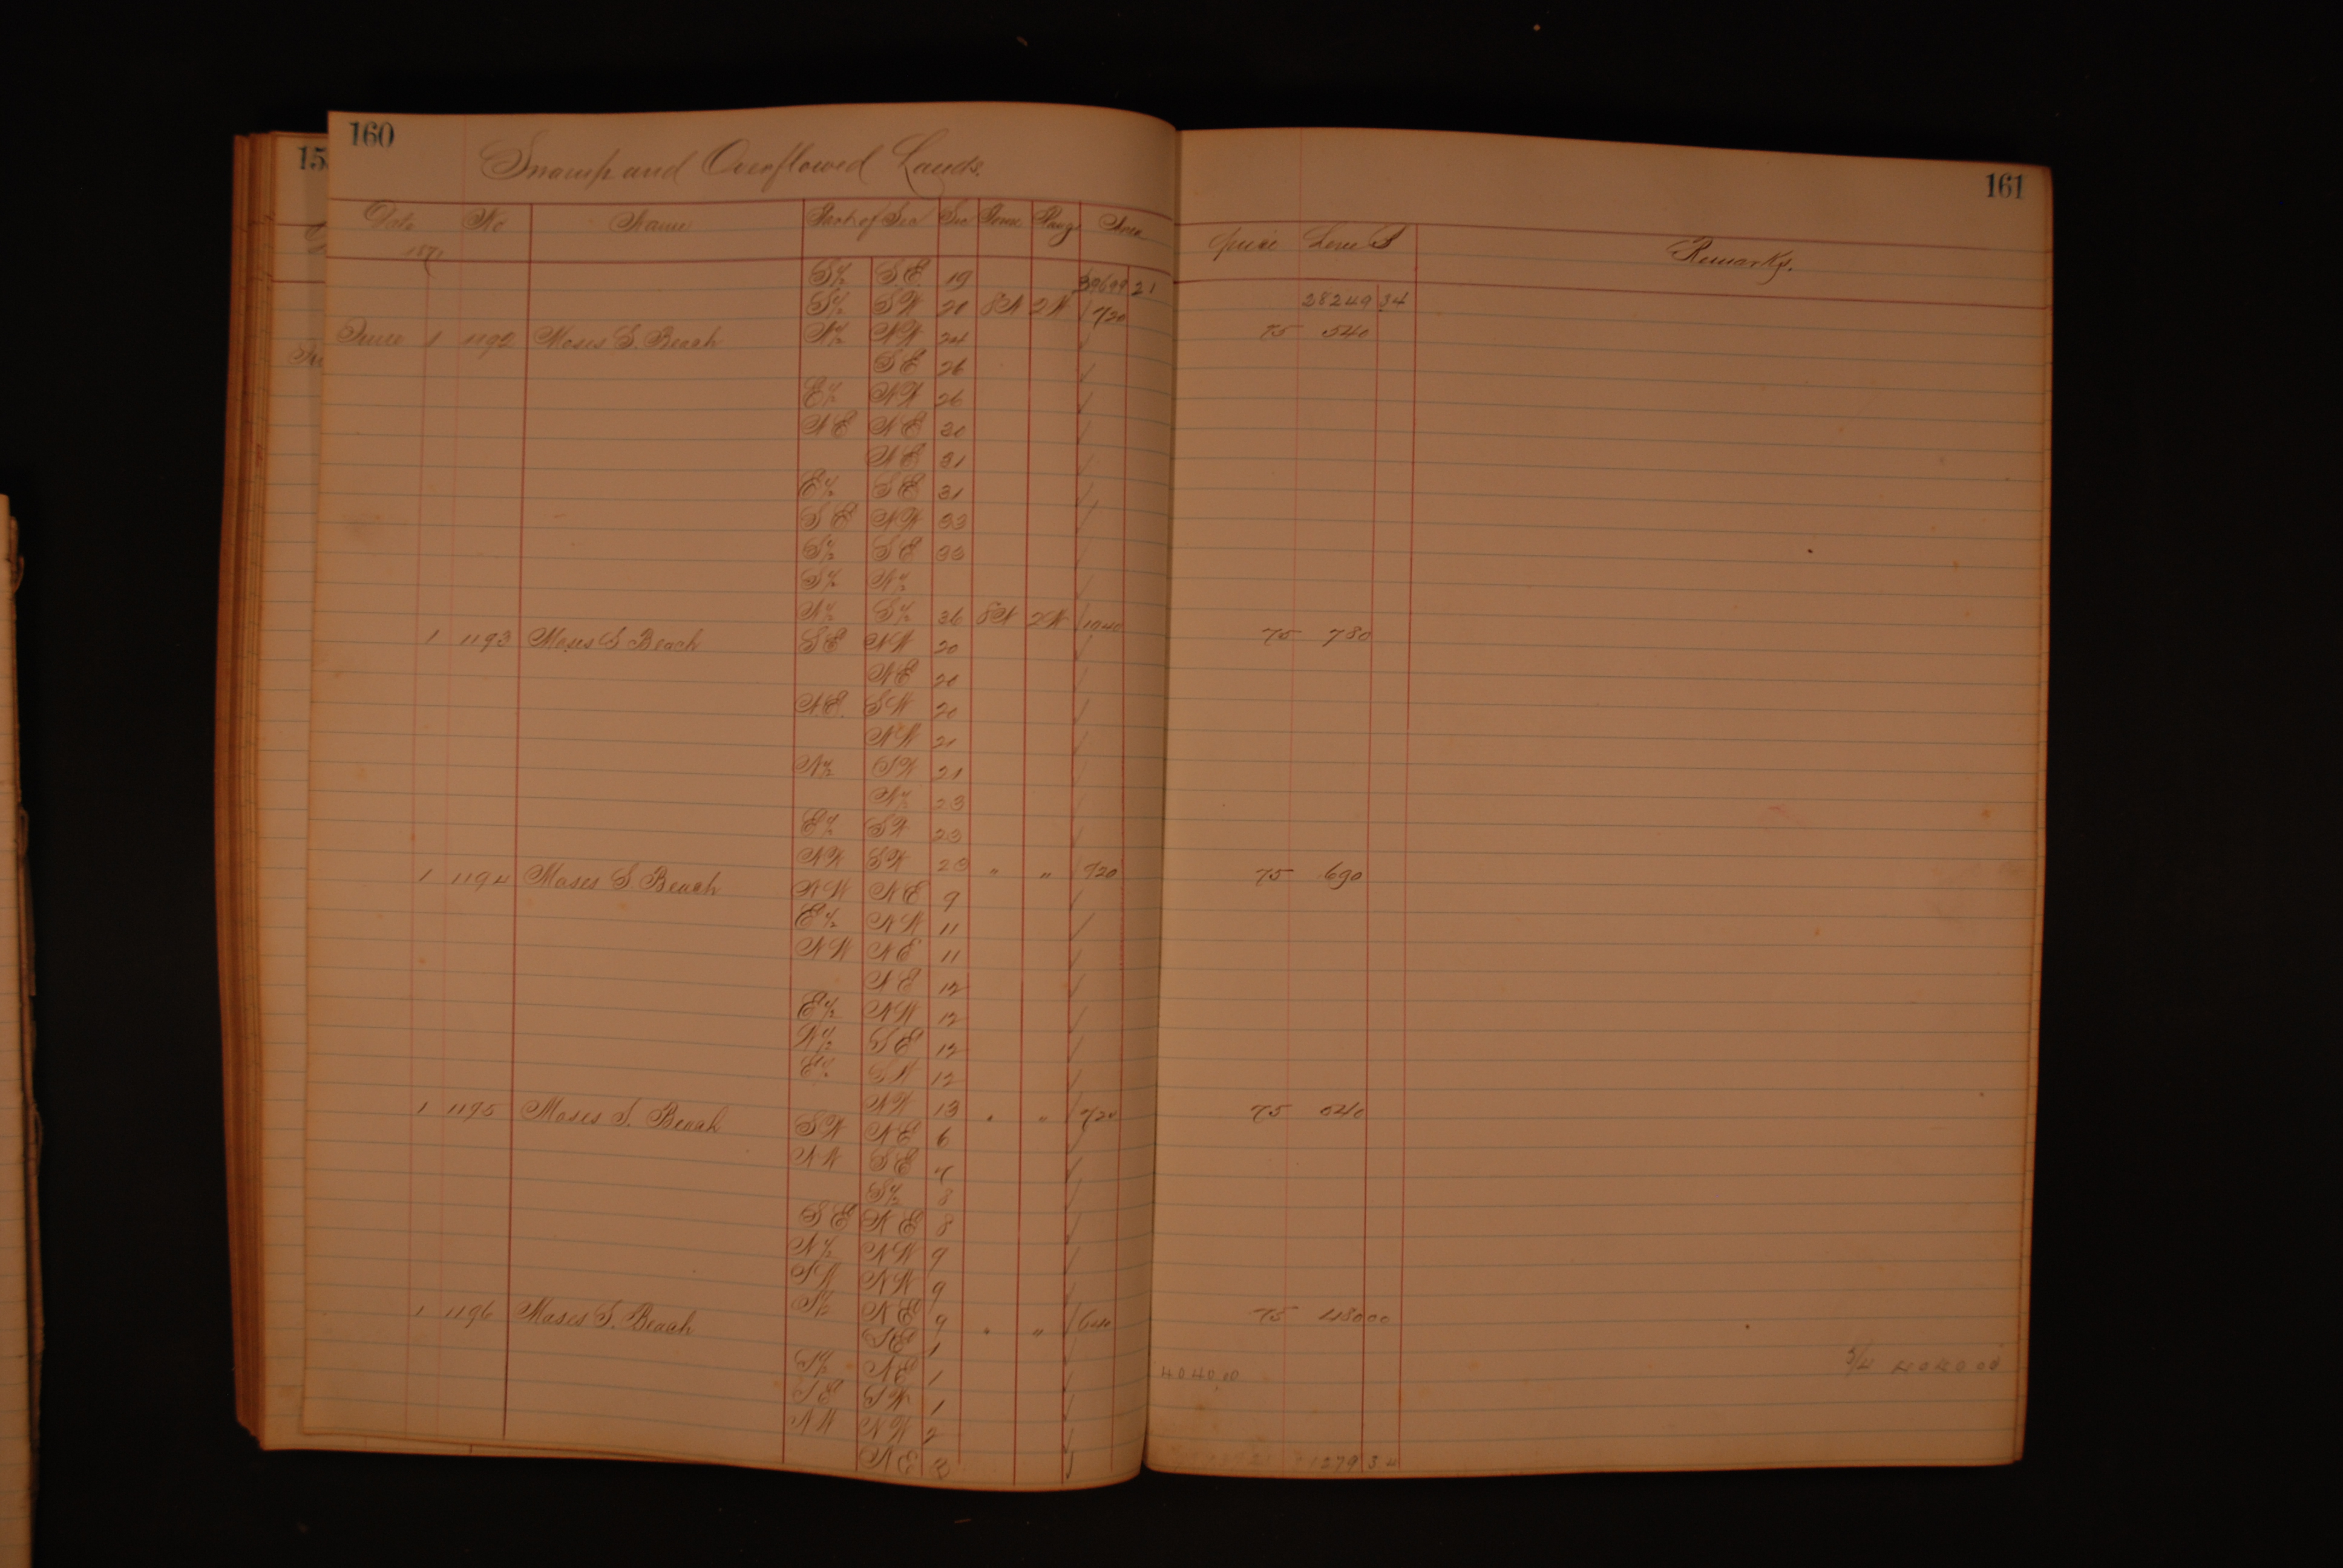 160
Swamp and Overflowed Lands.
Date No Name Part of Sec Sec Town Range Area
187
S½ S.E. 19 39699 21
S½ SW 20 8N 2W 720
June 1 1192 Moses S. Beach N½ NW 24
SE 26
E½ NW 26
NE NE 30
NE 31
E½ SE 31
SE NW 33
S½ SE 33
S½ N½
N½ S½ 36 8N 2W 1040
1 1193 Moses S Beach SE NW 20
NE 20
N.E. SW 20
NW 21
N½ SW 21
N½ 23
E½ SW 23
NW SW 23 " " 920
1 1194 Moses S Beach NW NE 9
E½ NW 11
NW NE 11
NE 12
E½ NW 12
SE 12
E½ SW 12
NW 13 " " 720
1 1195 Moses S. Beach SW NE 6
NW SE
S½ 8
SE NE 8
N½ NW 9
SW NW 9
S½ NE 9 " " 640
1 1196 Moses S. Beach SE 1
S½ NE 1
SE SW 1
NW NW 2
NE 3
15
161
price Love $ Remarks.
28249 34
75 540
75 780
75 690
75 540
75 480 00
4040 00
3/4 4040 00
1279 34